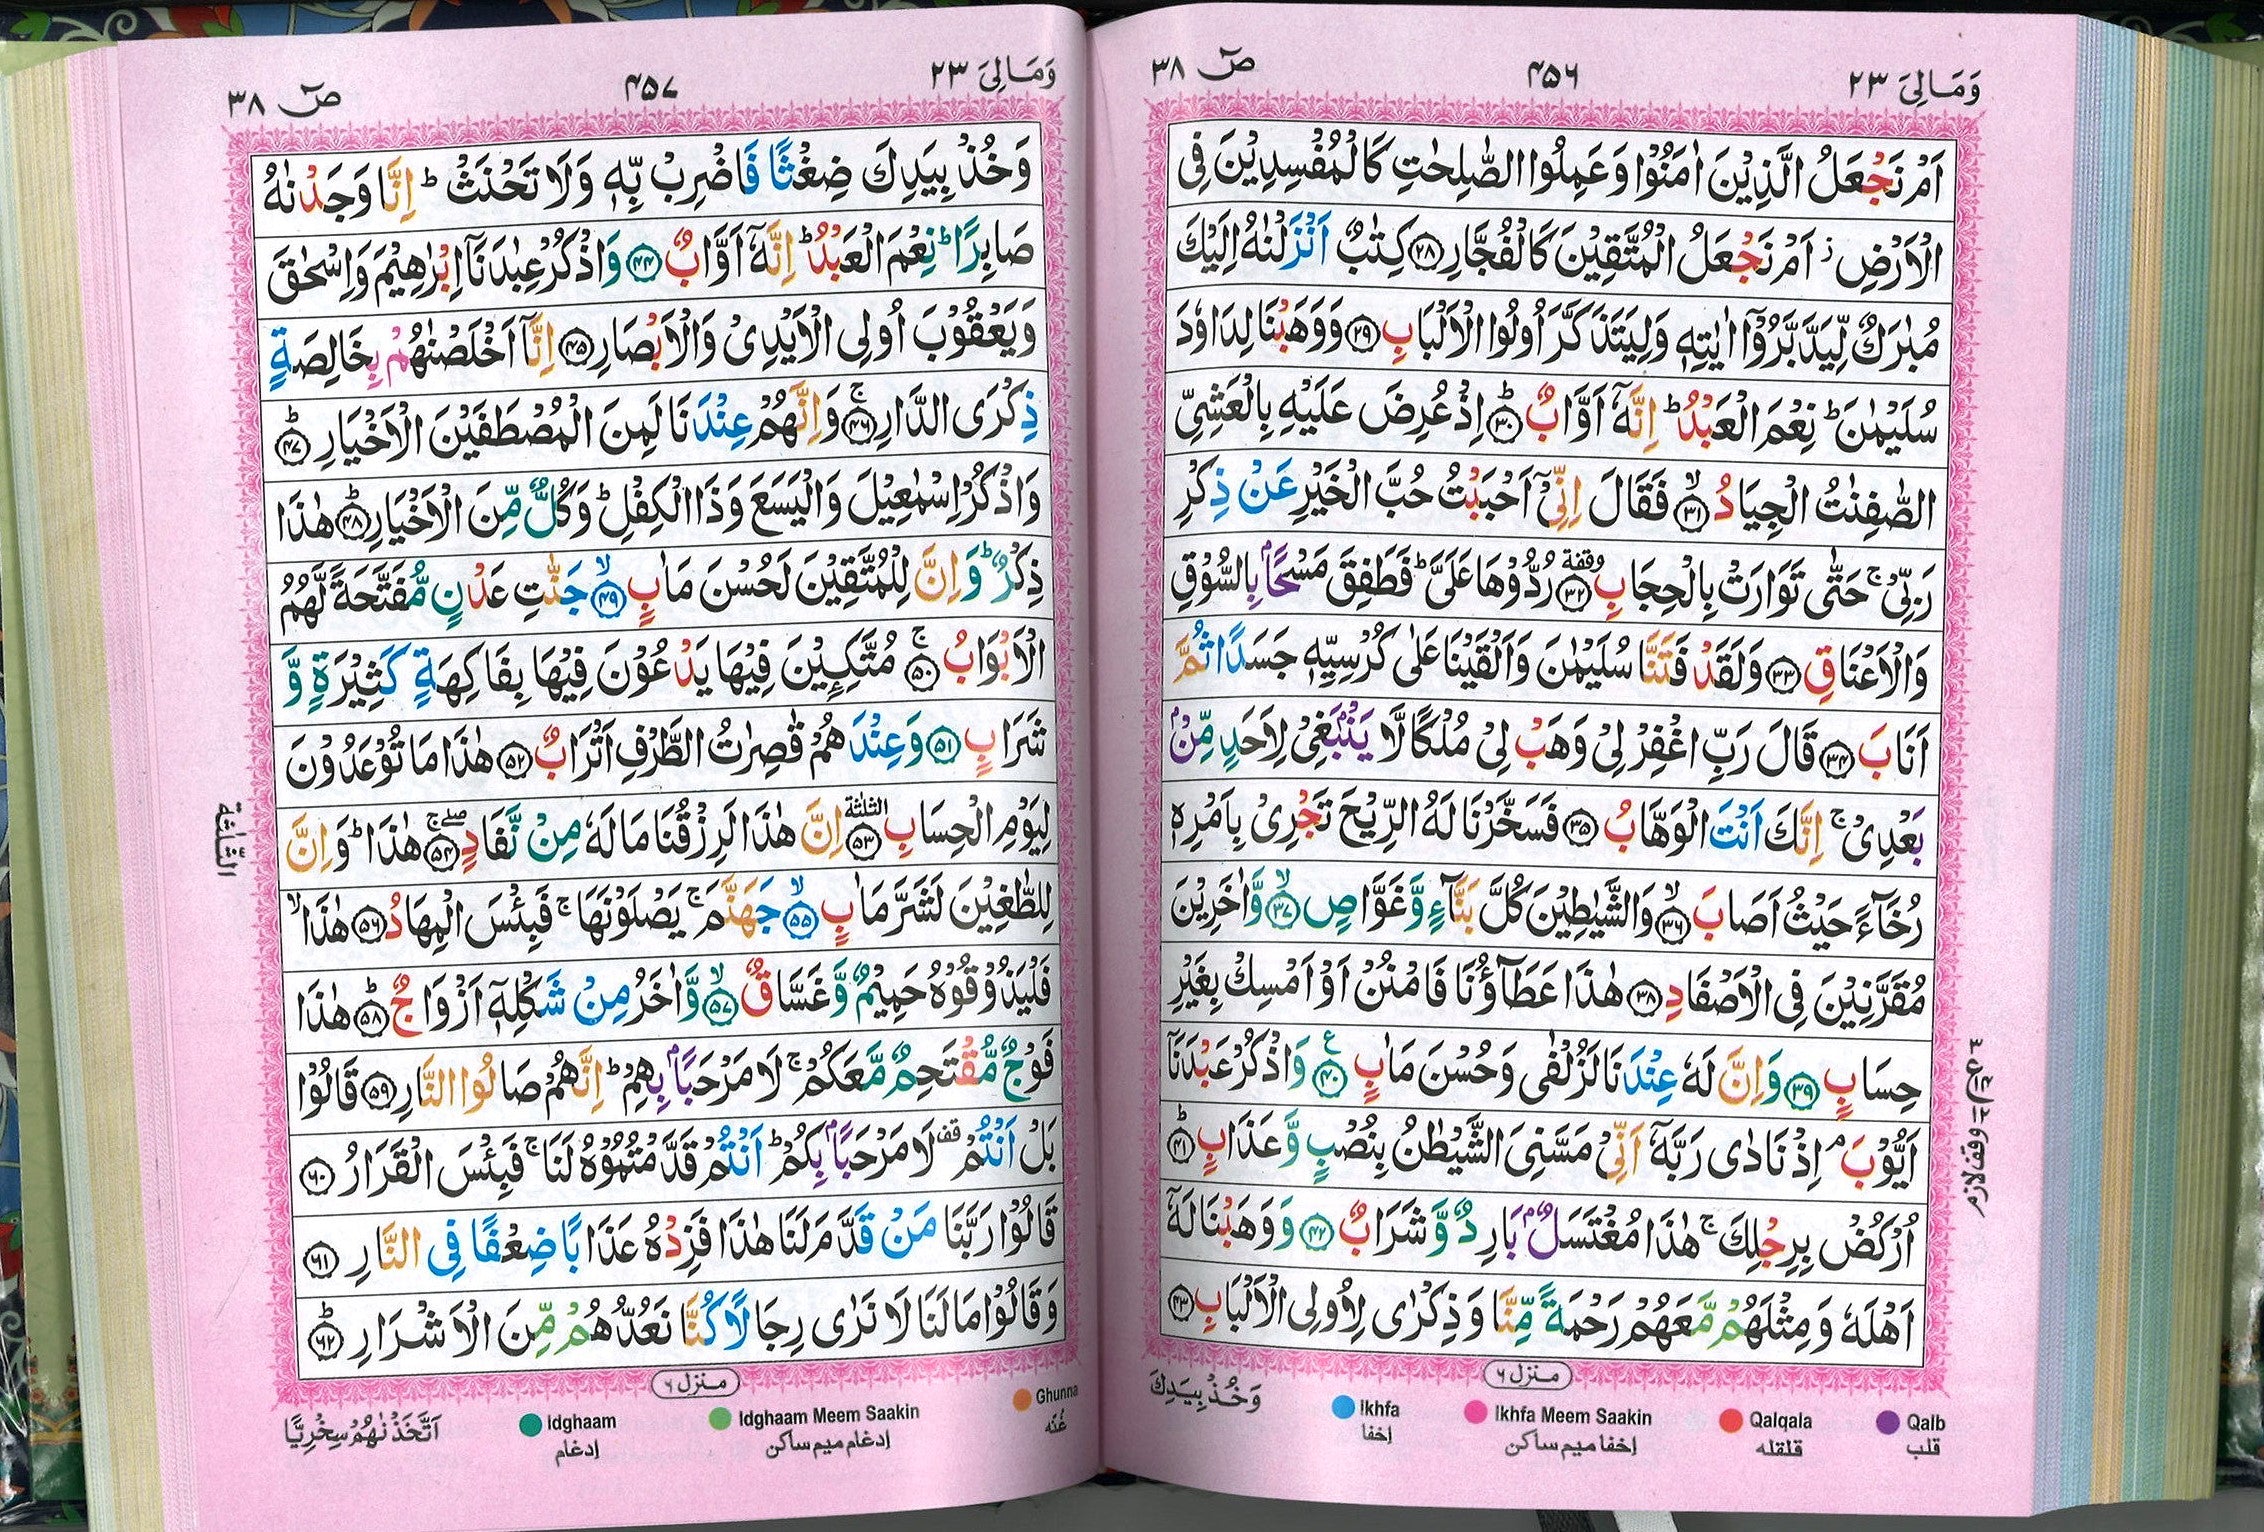 وَمَالِیَ ٢٣
۴۵۶
صٓ ٣٨
اَمْ نَجْعَلُ الَّذِیْنَ اٰمَنُوْا وَعَمِلُوا الصّٰلِحٰتِ كَالْمُفْسِدِیْنَ فِی
الْاَرْضِ ز اَمْ نَجْعَلُ الْمُتَّقِیْنَ كَالْفُجَّارِ ﴿٢٨﴾ كِتٰبٌ اَنْزَلْنٰهُ اِلَیْكَ
مُبٰرَكٌ لِّیَدَّبَّرُوْۤا اٰیٰتِهٖ وَلِیَتَذَكَّرَ اُولُوا الْاَلْبَابِ ﴿٢٩﴾ وَوَهَبْنَا لِدَاوٗدَ
سُلَیْمٰنَ ؕ نِعْمَ الْعَبْدُ ؕ اِنَّهٗۤ اَوَّابٌ ﴿٣٠﴾ؕ اِذْ عُرِضَ عَلَیْهِ بِالْعَشِیِّ
الصّٰفِنٰتُ الْجِیَادُ ﴿٣١﴾ۙ فَقَالَ اِنِّیْۤ اَحْبَبْتُ حُبَّ الْخَیْرِ عَنْ ذِكْرِ
رَبِّیْ ۚ حَتّٰی تَوَارَتْ بِالْحِجَابِ ﴿٣٢﴾ وقفة رُدُّوْهَا عَلَیَّ ؕ فَطَفِقَ مَسْحًۢا بِالسُّوْقِ
وَالْاَعْنَاقِ ﴿٣٣﴾ وَلَقَدْ فَتَنَّا سُلَیْمٰنَ وَاَلْقَیْنَا عَلٰی كُرْسِیِّهٖ جَسَدًا ثُمَّ
اَنَابَ ﴿٣۴﴾ قَالَ رَبِّ اغْفِرْ لِیْ وَهَبْ لِیْ مُلْكًا لَّا یَنْۢبَغِیْ لِاَحَدٍ مِّنْۢ
بَعْدِیْ ۚ اِنَّكَ اَنْتَ الْوَهَّابُ ﴿٣۵﴾ فَسَخَّرْنَا لَهُ الرِّیْحَ تَجْرِیْ بِاَمْرِهٖ
رُخَآءً حَیْثُ اَصَابَ ﴿٣۶﴾ۙ وَالشَّیٰطِیْنَ كُلَّ بَنَّآءٍ وَّغَوَّاصٍ ﴿٣٧﴾ۙ وَّاٰخَرِیْنَ
مُقَرَّنِیْنَ فِی الْاَصْفَادِ ﴿٣٨﴾ هٰذَا عَطَآؤُنَا فَامْنُنْ اَوْ اَمْسِكْ بِغَیْرِ
حِسَابٍ ﴿٣٩﴾ وَاِنَّ لَهٗ عِنْدَنَا لَزُلْفٰی وَحُسْنَ مَاٰبٍ ﴿۴٠﴾ ع وَاذْكُرْ عَبْدَنَاۤ
اَیُّوْبَ ۘ اِذْ نَادٰی رَبَّهٗۤ اَنِّیْ مَسَّنِیَ الشَّیْطٰنُ بِنُصْبٍ وَّعَذَابٍ ﴿۴١﴾ؕ
اُرْكُضْ بِرِجْلِكَ ۚ هٰذَا مُغْتَسَلٌۢ بَارِدٌ وَّشَرَابٌ ﴿۴٢﴾ وَوَهَبْنَا لَهٗۤ
اَهْلَهٗ وَمِثْلَهُمْ مَّعَهُمْ رَحْمَةً مِّنَّا وَذِكْرٰی لِاُولِی الْاَلْبَابِ ﴿۴٣﴾
وقف لازم
منزل ۶
وَخُذْ بِیَدِكَ
Ikhfa
إخفا
Ikhfa Meem Saakin
إخفا میم ساکن
Qalqala
قلقله
Qalb
قلب
وَمَالِیَ ٢٣
۴۵٧
صٓ ٣٨
وَخُذْ بِیَدِكَ ضِغْثًا فَاضْرِبْ بِّهٖ وَلَا تَحْنَثْ ؕ اِنَّا وَجَدْنٰهُ
صَابِرًا ؕ نِعْمَ الْعَبْدُ ؕ اِنَّهٗۤ اَوَّابٌ ﴿۴۴﴾ وَاذْكُرْ عِبٰدَنَاۤ اِبْرٰهِیْمَ وَاِسْحٰقَ
وَیَعْقُوْبَ اُولِی الْاَیْدِیْ وَالْاَبْصَارِ ﴿۴۵﴾ اِنَّاۤ اَخْلَصْنٰهُمْ بِخَالِصَةٍ
ذِكْرَی الدَّارِ ﴿۴۶﴾ۚ وَاِنَّهُمْ عِنْدَنَا لَمِنَ الْمُصْطَفَیْنَ الْاَخْیَارِ ﴿۴٧﴾ؕ
وَاذْكُرْ اِسْمٰعِیْلَ وَالْیَسَعَ وَذَا الْكِفْلِ ؕ وَكُلٌّ مِّنَ الْاَخْیَارِ ﴿۴٨﴾ؕ هٰذَا
ذِكْرٌ ؕ وَاِنَّ لِلْمُتَّقِیْنَ لَحُسْنَ مَاٰبٍ ﴿۴٩﴾ۙ جَنّٰتِ عَدْنٍ مُّفَتَّحَةً لَّهُمُ
الْاَبْوَابُ ﴿۵٠﴾ۚ مُتَّكِـِٕیْنَ فِیْهَا یَدْعُوْنَ فِیْهَا بِفَاكِهَةٍ كَثِیْرَةٍ وَّ
شَرَابٍ ﴿۵١﴾ وَعِنْدَهُمْ قٰصِرٰتُ الطَّرْفِ اَتْرَابٌ ﴿۵٢﴾ هٰذَا مَا تُوْعَدُوْنَ
لِیَوْمِ الْحِسَابِ ﴿۵٣﴾ الثلٰثة اِنَّ هٰذَا لَرِزْقُنَا مَا لَهٗ مِنْ نَّفَادٍ ﴿۵۴﴾ صلے ج هٰذَا ؕ وَاِنَّ
لِلطّٰغِیْنَ لَشَرَّ مَاٰبٍ ﴿۵۵﴾ۙ جَهَنَّمَ ۚ یَصْلَوْنَهَا ۚ فَبِئْسَ الْمِهَادُ ﴿۵۶﴾ هٰذَا ۙ
فَلْیَذُوْقُوْهُ حَمِیْمٌ وَّغَسَّاقٌ ﴿۵٧﴾ۙ وَّاٰخَرُ مِنْ شَكْلِهٖۤ اَزْوَاجٌ ﴿۵٨﴾ؕ هٰذَا
فَوْجٌ مُّقْتَحِمٌ مَّعَكُمْ ۚ لَا مَرْحَبًۢا بِهِمْ ؕ اِنَّهُمْ صَالُوا النَّارِ ﴿۵٩﴾ قَالُوْا
بَلْ اَنْتُمْ قف لَا مَرْحَبًۢا بِكُمْ ؕ اَنْتُمْ قَدَّمْتُمُوْهُ لَنَا ۚ فَبِئْسَ الْقَرَارُ ﴿۶٠﴾
قَالُوْا رَبَّنَا مَنْ قَدَّمَ لَنَا هٰذَا فَزِدْهُ عَذَابًا ضِعْفًا فِی النَّارِ ﴿۶١﴾
وَقَالُوْا مَا لَنَا لَا نَرٰی رِجَالًا كُنَّا نَعُدُّهُمْ مِّنَ الْاَشْرَارِ ﴿۶٢﴾ؕ
الثّلٰثة
منزل ۶
اَتَّخَذْنٰهُمْ سِخْرِیًّا
Idghaam
إدغام
Idghaam Meem Saakin
إدغام میم ساکن
Ghunna
غُنّه